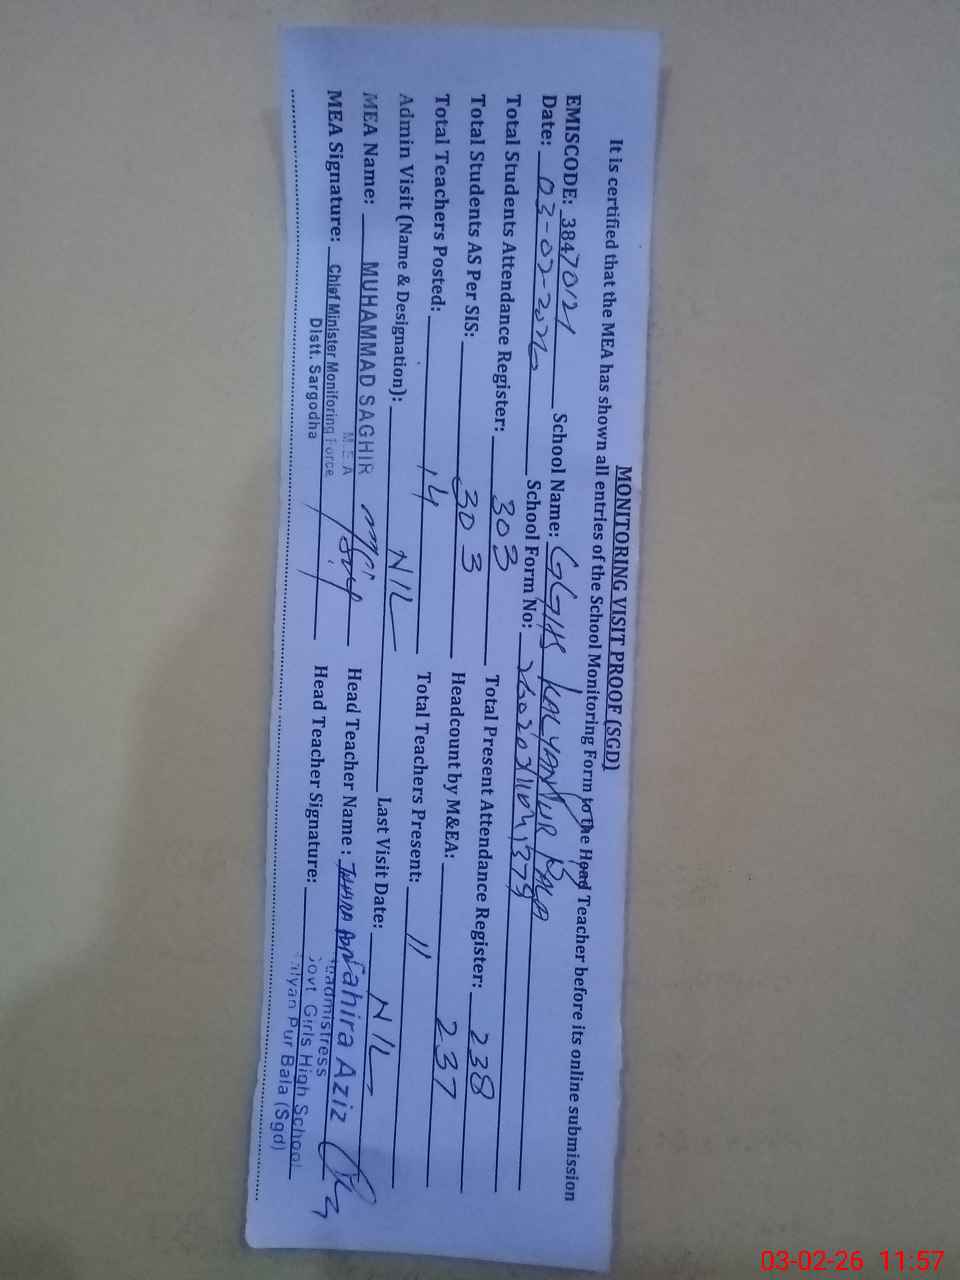 MONITORING VISIT PROOF (SGD)
It is certified that the MEA has shown all entries of the School Monitoring Form to the Head Teacher before its online submission
EMISCODE: 38470121 School Name: GGHS KALYANPUR BALA
Date: 03-02-2026 School Form No:
Total Students Attendance Register: 303 Total Present Attendance Register: 238
Total Students AS Per SIS: 303 Headcount by M&EA: 237
Total Teachers Posted: 14 Total Teachers Present: 11
Admin Visit (Name & Designation): NIL Last Visit Date: NIL
MEA Name: MUHAMMAD SAGHIR Head Teacher Name: Tahira Aziz
M.E.A
MEA Signature: Chief Minister Monitoring Force Head Teacher Signature:
Distt. Sargodha
Headmistress
Govt Girls High School
Kalyan Pur Bala (Sgd)
03-02-26 11:57